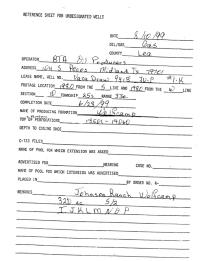 REFERENCE SHEET FOR UNDESIGNATED WELLS
DATE 8/10/99
OIL/GAS Gas
COUNTY Lea
OPERATOR BTA Oil Producers
ADDRESS 104 S Pecos Midland Tx 79701
LEASE, WELL NO. Vaca Draw 9418 JV-P #1-K
FOOTAGE LOCATION 1980 FROM THE S LINE AND 1980 FROM THE W LINE
SECTION 10 TOWNSHIP 25s RANGE 33e
COMPLETION DATE 6/23/99
NAME OF PRODUCING FORMATION Wolfcamp
TOP OF PERFORATIONS
DEPTH TO CASING SHOE
C-123 FILED
NAME OF POOL FOR WHICH EXTENSION WAS ASKED
ADVERTISED FOR HEARING CASE NO.
NAME OF POOL FOR WHICH EXTENSION WAS ADVERTISED
PLACED IN BY ORDER NO. R-
REMARKS Johnson Ranch Wolfcamp
320 ac S/2
I J K L M N O P